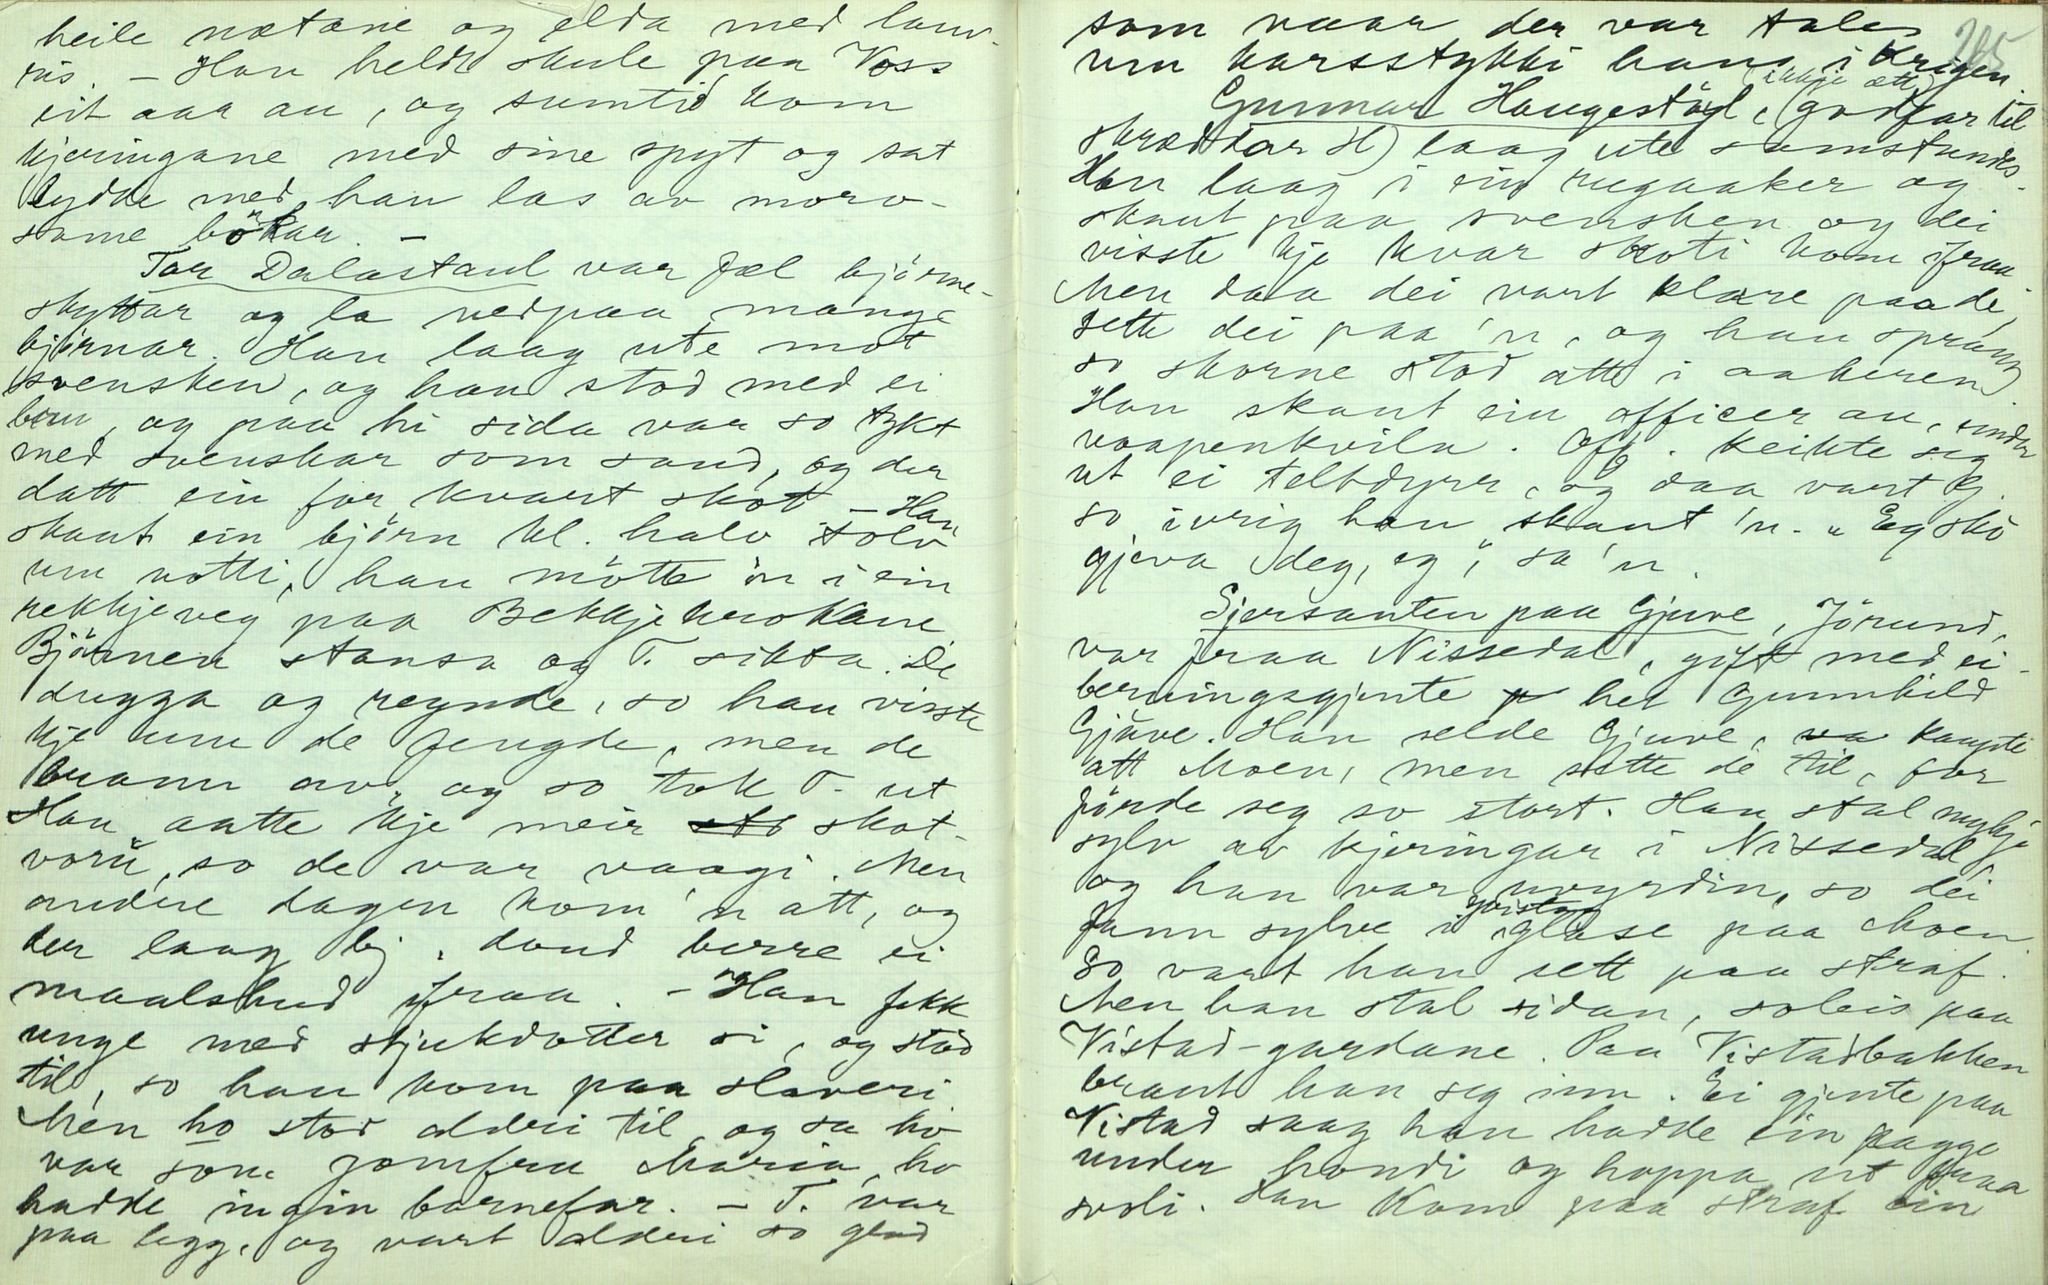 heile nætane og elda med lauv-
ris. – Han heldt skule paa Voss
eit aar au, og sumtid kom
kjeringane med sine spyt og sat
lydde med han las av moro-
same bøkar. –
Tor Dalastaul var fæl bjørne-
skyttar og la nedpaa mange
bjørnar. Han laag ute mot
svensken, og han stod med ei
bru, og paa hi sida var so tykt
med svenskar som sand, og der
datt ein for kvart skot – Han
skaut ein bjørn kl. halv tolv
um notti, han møtte 'n i ein
rekkjeveg paa Bekkjekrokane
Bjørnen stansa og T. sikta. De
dugga og regnde, so han visste
kje um de fengde, men de
brann av, og so tok T. ut
Han aatte kje meir skot-
voru, so de var vaagi. Men
andre dagen kom 'n att, og
der laag bj. daud berre ei
maalshud ifraa. – Han fekk
unge med stjukdotter si, og stod
til, so han kom paa slaveri
Men ho stod alderi til, og sa ho
var som jomfru Maria, ho
hadde ingin barnefar. – T. var
paa legg, og vart alderi so glad
som naar der var tale 205
um karsstykki hans i krigen.
(ikkje ætt)
Gunnar Haugestøyl, (godfar til
skræddar H) laag ute samstundes.
Han laag i ein rugaaker og
skaut paa svensken og dei
visste kje kvar skoti kom ifraa
Men daa dei vart klare paa de,
sette dei paa 'n, og han sprang
so skorne stod att i aakeren
Han skaut ein officer au, under
vaapenkvila. Off. keikte seg
ut ei teltdyrr, og daa vart G.
so ivrig han skaut 'n. "Eg sko
gjeva deg, eg", sa 'n.
Sjersanten paa Gjuve, Jørund,
var fraa Nissedal, gift med ei
berningsgjente het Gunnhild
Gjuve. Han selde Gjuve, kaupte
att Moen, men sette de til, for
førde seg so stort. Han stal mykje
sylv av kjeringar i Nissedal,
og han var uvyrdin, so dei
fann sylve i glase paa Moen
So vart han sett paa straf.
Men han stal sidan, soleis paa
Vistad-gardane. Paa Vistadbakken
braut han seg inn. Ei gjente paa
Vistad saag han hadde ein pagge
under hondi og hoppa ut fraa
svoli. Han kom paa straf ein